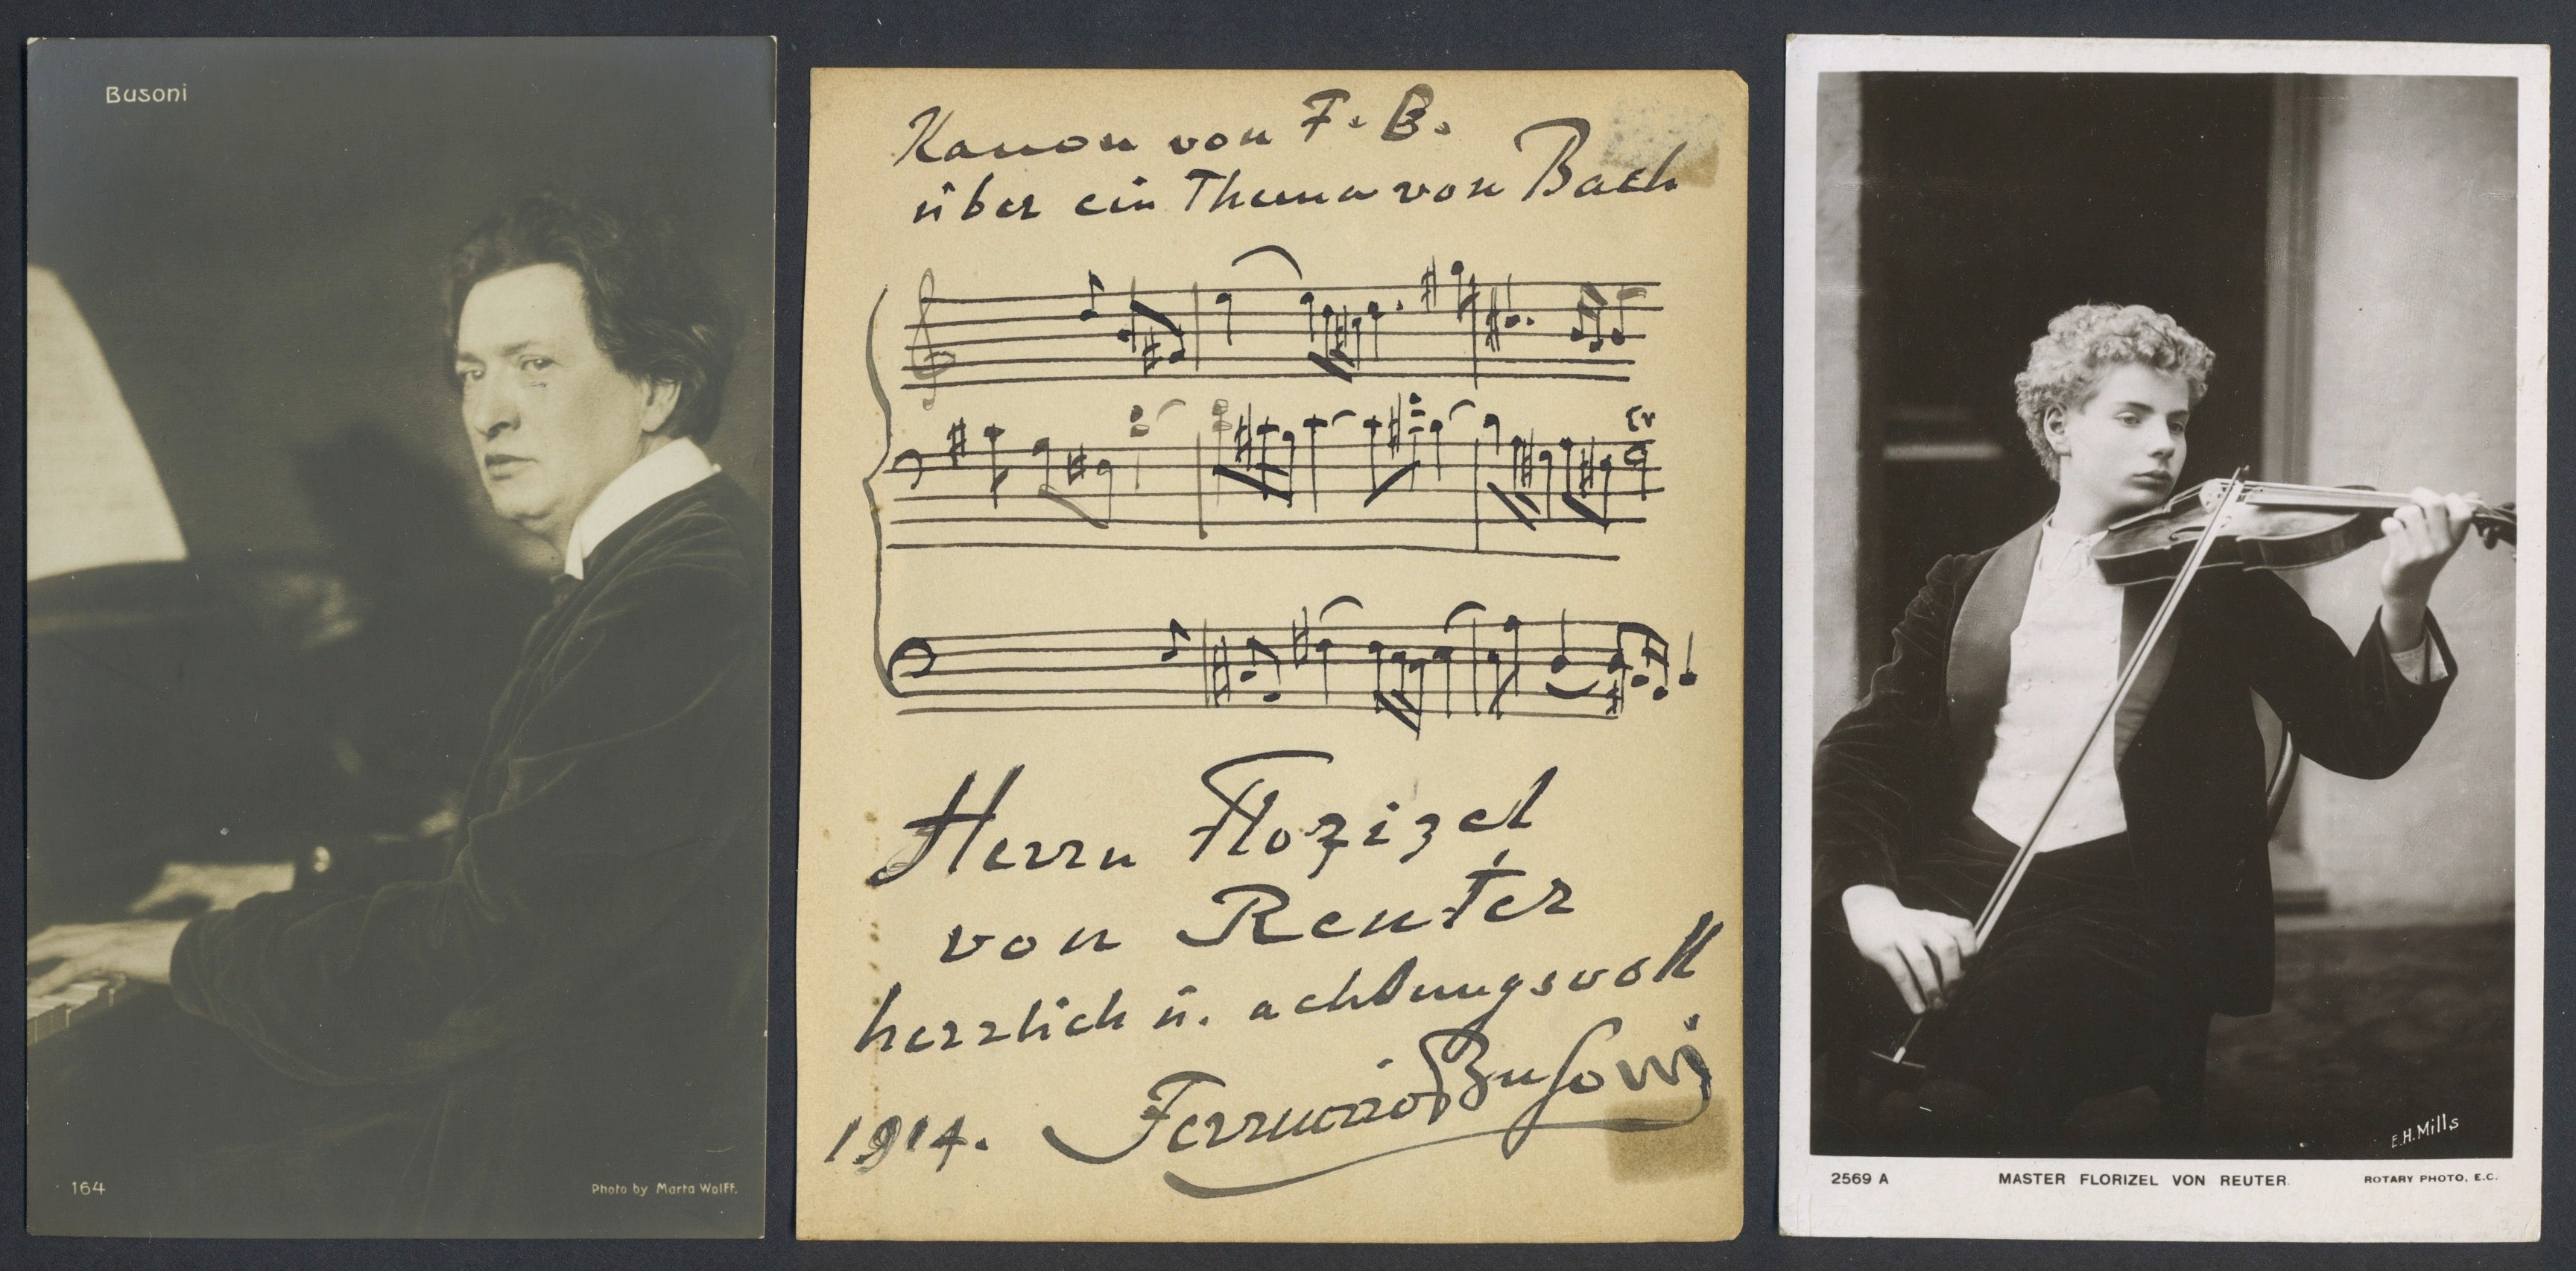 Busoni
164
Photo by Marta Wolff.
Kanon von F. B.
über ein Thema von Bach
tr
Herrn Florizel
von Reuter
herzlich u. achtungsvoll
Ferruccio Busoni
1914.
E.H. Mills
2569 A
MASTER FLORIZEL VON REUTER.
ROTARY PHOTO, E.C.